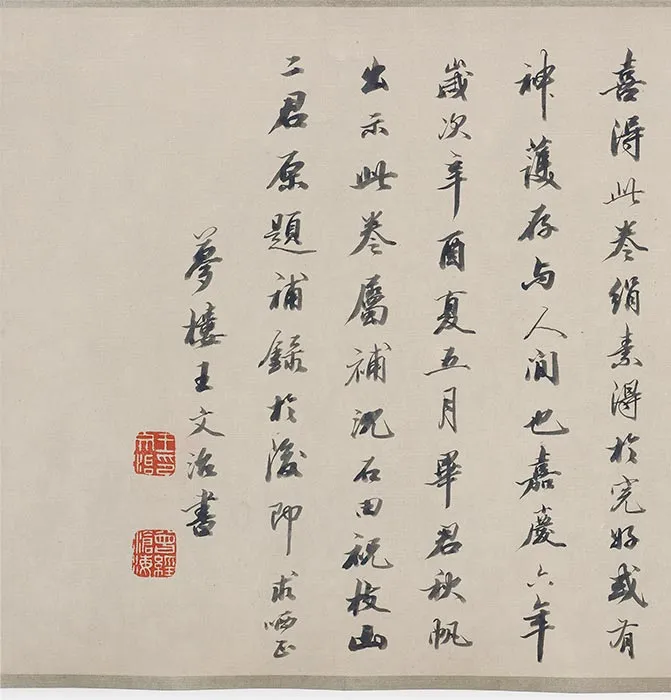 喜得此卷絹素得於完好或有
神護存与人间也嘉慶六年
歲次辛酉夏五月畢君秋帆
出示此卷屬補沈石田祝枝山
二君原題補錄於後即求哂正
夢樓王文治書
王文治印
曾經滄海